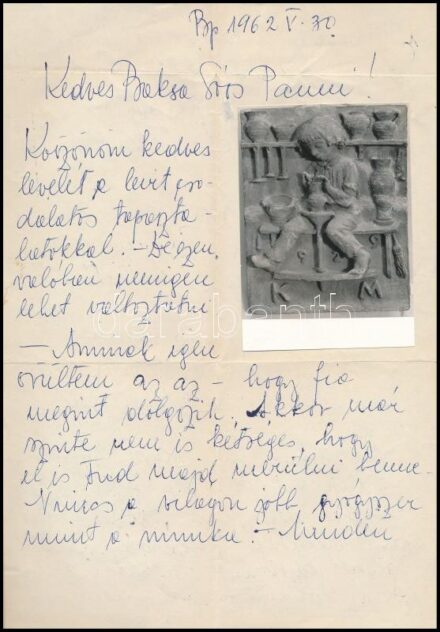 Bp 1962 V. 30.
Kedves Baksa Soós Panni!
Köszönöm kedves
levelét a leírt cso-
dálatos tapaszta-
latokkal. – De ezen
valóban nemigen
lehet változtatni
– Annak igen
örültem az az – hogy fia
megint dolgozik. Akkor már
szinte nem is kétséges, hogy
el is tud majd merülni benne.
Nincs a világon jobb gyógyszer
mint a munka. – Minden
K M
darabanth